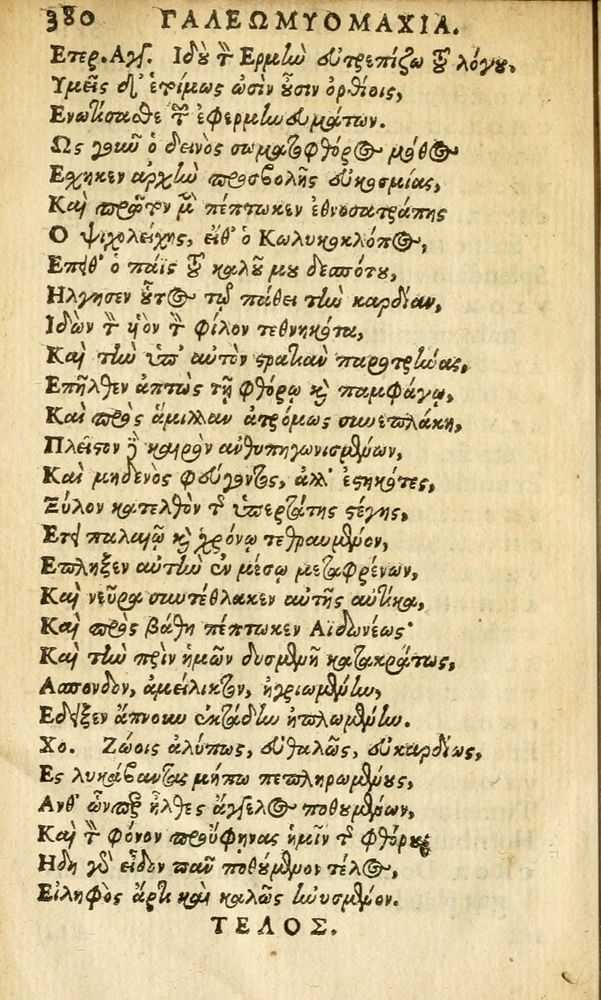 380 ΓΑΛΕΩΜΥΟΜΑΧΙΑ.
Ετερ. Αγγ. Ιδοὺ τὸν Ερμὴν εὐτρεπίζω τοῦ λόγου,
Υμεῖς δ' ἑτοίμως ὠσὶν οὖσιν ὀρθίοις,
Ενωτίσασθε τῶν ἐφερμηνευμάτων.
Ως γοῦν ὁ δεινὸς σωματοφθόρος μόθος
Εσχηκεν ἀρχὴν προσβολῆς εὐκοσμίας,
Καὶ πρῶτον μὲν πέπτωκεν ἐθνοσατράπης
Ο ψιχολείχης, εἶθ' ὁ Κωλυκοκλόπος,
Επειθ' ὁ παῖς τοῦ καλοῦ μου δεσπότου,
Ηλγησεν οὗτος τῷ πάθει τὴν καρδίαν,
Ιδὼν τὸν υἱὸν τὸν φίλον τεθνηκότα,
Καὶ τὴν ὑπ' αὐτὸν στρατιὰν παροτρύνας,
Επῆλθεν ἀπτὼς τῇ φθόρῳ καὶ παμφάγῳ,
Καὶ πρὸς ἅμιλλαν ἀτρόμως συνεπλάκη,
Πλεῖστον δὲ καιρὸν ἀνθυπηγωνισμένων,
Καὶ μηδενὸς φεύγοντος, ἀλλ' ἑστηκότες,
Ξύλον κατελθὸν τῆς ὑπερτάτης στέγης,
Ετει παλαιῷ καὶ χρόνῳ τεθραυμένον,
Επληξεν αὐτὴν ἐν μέσῳ μεταφρένων,
Καὶ νεῦρα συντέθλακεν αὐτῆς αὐτίκα,
Καὶ πρὸς βάθη πέπτωκεν Αϊδωνέως·
Καὶ τὴν πρὶν ἡμῶν δυσμενῆ κατακράτως,
Ασπονδον, ἀμείλικτον, ἠγριωμένην,
Εδειξεν ἄπνουν ἐκτάδην ἡπλωμένην.
Χο. Ζώοις ἀλύπως, εὐθαλῶς, εὐκαρδίως,
Ες λυκάβαντας μήπω πεπληρωμένους,
Ανθ' ὧνπερ ἦλθες ἄγγελος ποθουμένων,
Καὶ τὸν φόνον προὔφηνας ἡμῖν τῆς φθόρου·
Ηδη γὰρ εἶδον πᾶν ποθούμενον τέλος,
Εἰληφὸς ἄρτι καὶ καλῶς ἠνυσμένον.
ΤΕΛΟΣ.